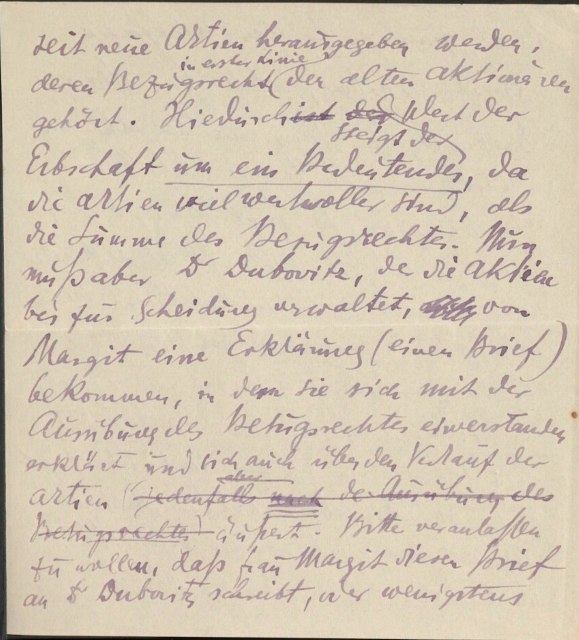 zeit neue Aktien herausgegeben werden,
in erster Linie
deren Bezugsrecht (den alten Aktionären
gehört. Hiedurch ist der Wert der
steigt der
Erbschaft um ein Bedeutendes, da
die Aktien viel wertvoller sind, als
die Summe des Bezugsrechtes. Nun
muß aber Dr Dubovitz, der die Aktien
bis zur Scheidung verwaltet, von
Margit eine Erklärung (einen Brief)
bekommen, in dem sie sich mit der
Ausübung des Bezugsrechtes einverstanden
erklärt und sich auch über den Verkauf der
aber
Aktien (jedenfalls nach der Ausübung des
Bezugsrechtes) äußert. Bitte veranlassen
zu wollen, daß Frau Margit diesen Brief
an Dr Dubovitz schreibt, oder wenigstens